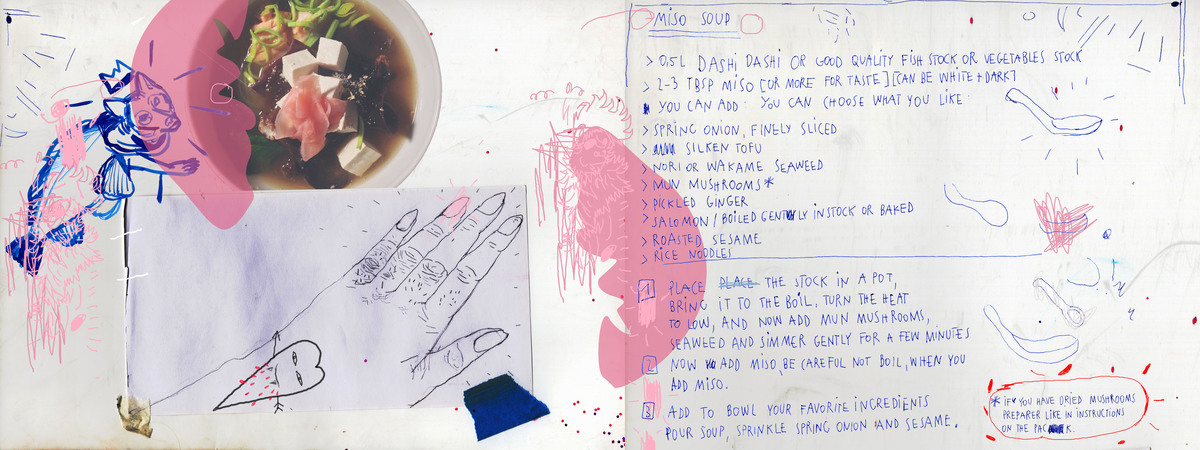 MISO SOUP
> 0,5L DASHI DASHI OR GOOD QUALITY FISH STOCK OR VEGETABLES STOCK
> 2-3 TBSP MISO [OR MORE FOR TASTE] [CAN BE WHITE + DARK]
YOU CAN ADD: YOU CAN CHOOSE WHAT YOU LIKE:
> SPRING ONION, FINELY SLICED
> SILKEN TOFU
> NORI OR WAKAME SEAWEED
> MUN MUSHROOMS*
> PICKLED GINGER
> SALOMON / BOILED GENTLY IN STOCK OR BAKED
> ROASTED SESAME
> RICE NOODLES
1 PLACE PLACE THE STOCK IN A POT,
BRING IT TO THE BOIL, TURN THE HEAT
TO LOW, AND NOW ADD MUN MUSHROOMS,
SEAWEED AND SIMMER GENTLY FOR A FEW MINUTES
2 NOW ADD MISO, BE CAREFUL NOT BOIL, WHEN YOU
ADD MISO.
3 ADD TO BOWL YOUR FAVORITE INGREDIENTS
POUR SOUP, SPRINKLE SPRING ONION AND SESAME.
* IF YOU HAVE DRIED MUSHROOMS
PREPARER LIKE IN INSTRUCTIONS
ON THE